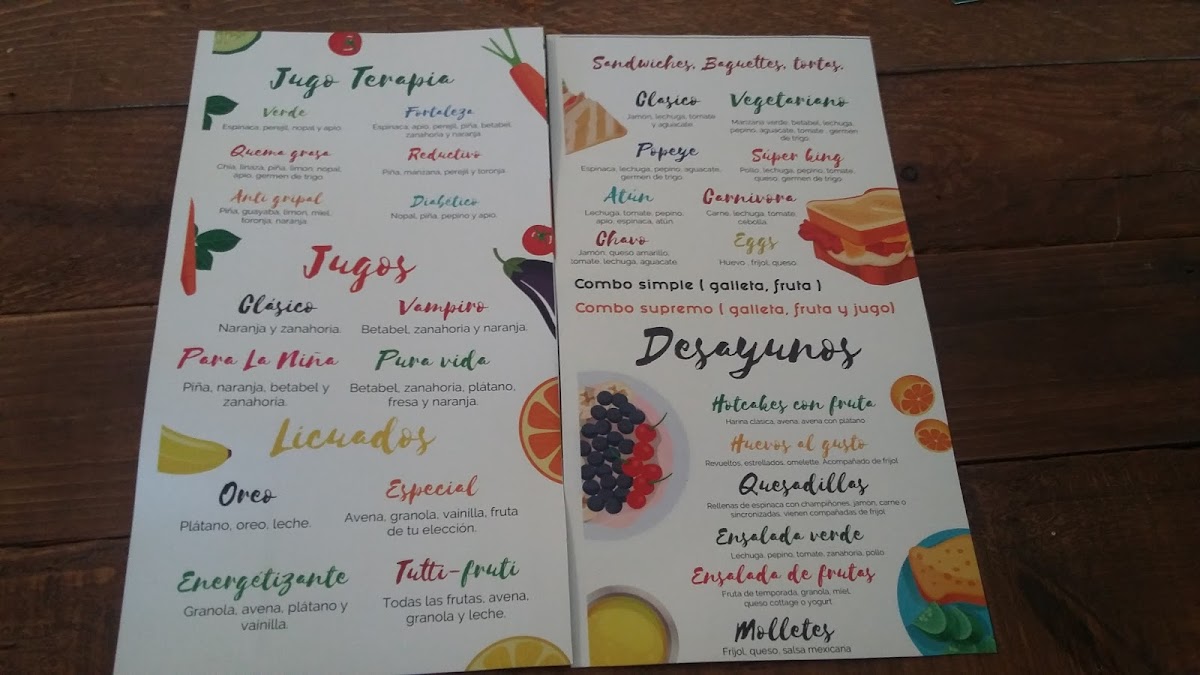 Jugo Terapia
Verde
Espinaca, perejil, nopal y apio.
Fortaleza
Espinaca, apio, perejil, piña, betabel,
zanahoria y naranja
Quema grasa
Chia, linaza, piña, limon, nopal,
apio, germen de trigo.
Reductivo
Piña, manzana, perejil y toronja.
Anti gripal
Piña, guayaba, limon, miel,
toronja, naranja
Diabético
Nopal, piña, pepino y apio.
Jugos
Clásico
Naranja y zanahoria.
Vampiro
Betabel, zanahoria y naranja.
Para La Niña
Piña, naranja, betabel y
zanahoria.
Pura vida
Betabel, zanahoria, plátano,
fresa y naranja.
Licuados
Oreo
Plátano, oreo, leche.
Especial
Avena, granola, vainilla, fruta
de tu elección.
Energétizante
Granola, avena, plátano y
vainilla.
Tutti-fruti
Todas las frutas, avena,
granola y leche.
Sandwiches, Baguettes, tortas.
Clasico
Jamón, lechuga, tomate
y aguacate
Vegetariano
Manzana verde, betabel, lechuga,
pepino, aguacate, tomate , germen
de trigo
Popeye
Espinaca, lechuga, pepino, aguacate,
germen de trigo
Súper king
Pollo, lechuga, pepino, tomate,
queso, germen de trigo.
Atún
Lechuga, tomate, pepino,
apio, espinaca, atún
Carnívora
Carne, lechuga, tomate,
cebolla.
Chavo
Jamón, queso amarillo,
tomate, lechuga, aguacate
Eggs
Huevo , frijol, queso.
Combo simple ( galleta, fruta )
Combo supremo ( galleta, fruta y jugo)
Desayunos
Hotcakes con fruta
Harina clasica, avena, avena con platano
Huevos al gusto
Revueltos, estrellados, omelette. Acompañado de frijol
Quesadillas
Rellenas de espinaca con champiñones, jamón, carne o
sincronizadas, vienen compañadas de frijol
Ensalada verde
Lechuga, pepino, tomate, zanahoria, pollo
Ensalada de frutas
Fruta de temporada, granola, miel,
queso cottage o yogurt
Molletes
Frijol, queso, salsa mexicana